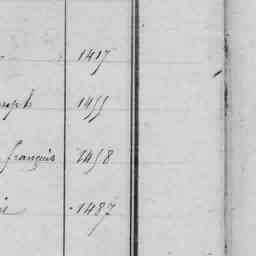 1417
1455
françois 1458
1487